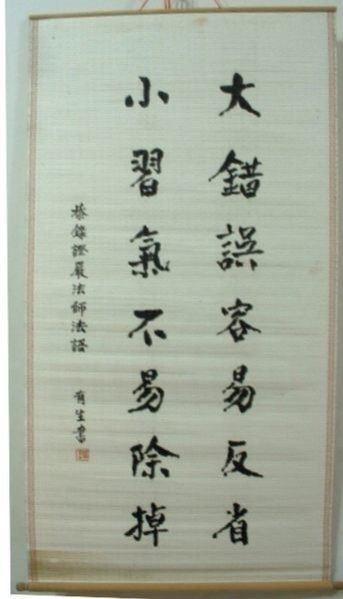 大錯誤容易反省
小習氣不易除掉
恭錄證嚴法師法語
有生書